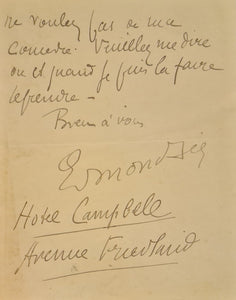 ne voulez pas de ma
Comedie. Veuillez me dire
où et quand je puis la faire
reprendre -
Bien à vous
Edmond Sée
Hotel Campbell
Avenue Friedland